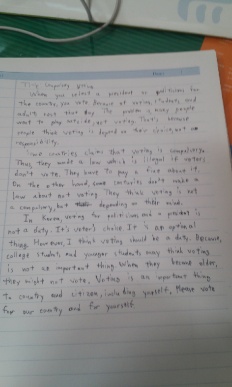 When you select a president or politicians for
the country, you vote someone at voting. Students and
adults
want to play outside, not voting. That's because
people think voting is depend on their choice, not
responsibility.
Some countries claims that voting is compulsory.
Thus, they made a law which is illegal if voters
don't vote. They have to pay a fine about it.
On the other hand, some countries don't make a
law about not voting. They think voting is not
a compulsory, but depending on their mind.
In Korea, voting for politicians and a president is
not a duty. It's voters choice. It is an optional
thing. However, I think voting should be a duty. Because,
college students and younger students may think voting
is not an important thing. When they become older,
they might not vote. Voting is an important thing
to country and citizen, including yourself. Please vote
for our country and for yourself.